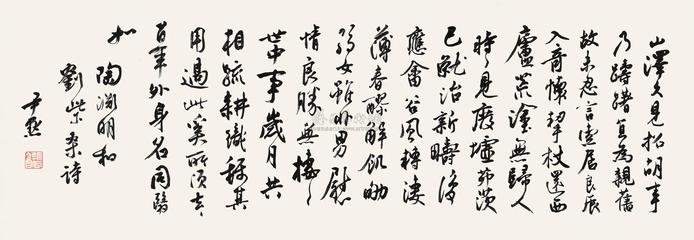 山澤久見招胡事
乃躊躇直為親舊
故未忍言索居良辰
入奇懷挈杖還西
廬荒塗無歸人
時〻見廢墟茅茨
已就治新疇復
應畬谷風轉淒
薄春醪解飢劬
弱女雖非男慰
情良勝無棲〻
世中事歲月共
相疏耕織稱其
用過此奚所須去〻
百年外身名同翳
如
陶淵明和
劉柴桑詩
尹默